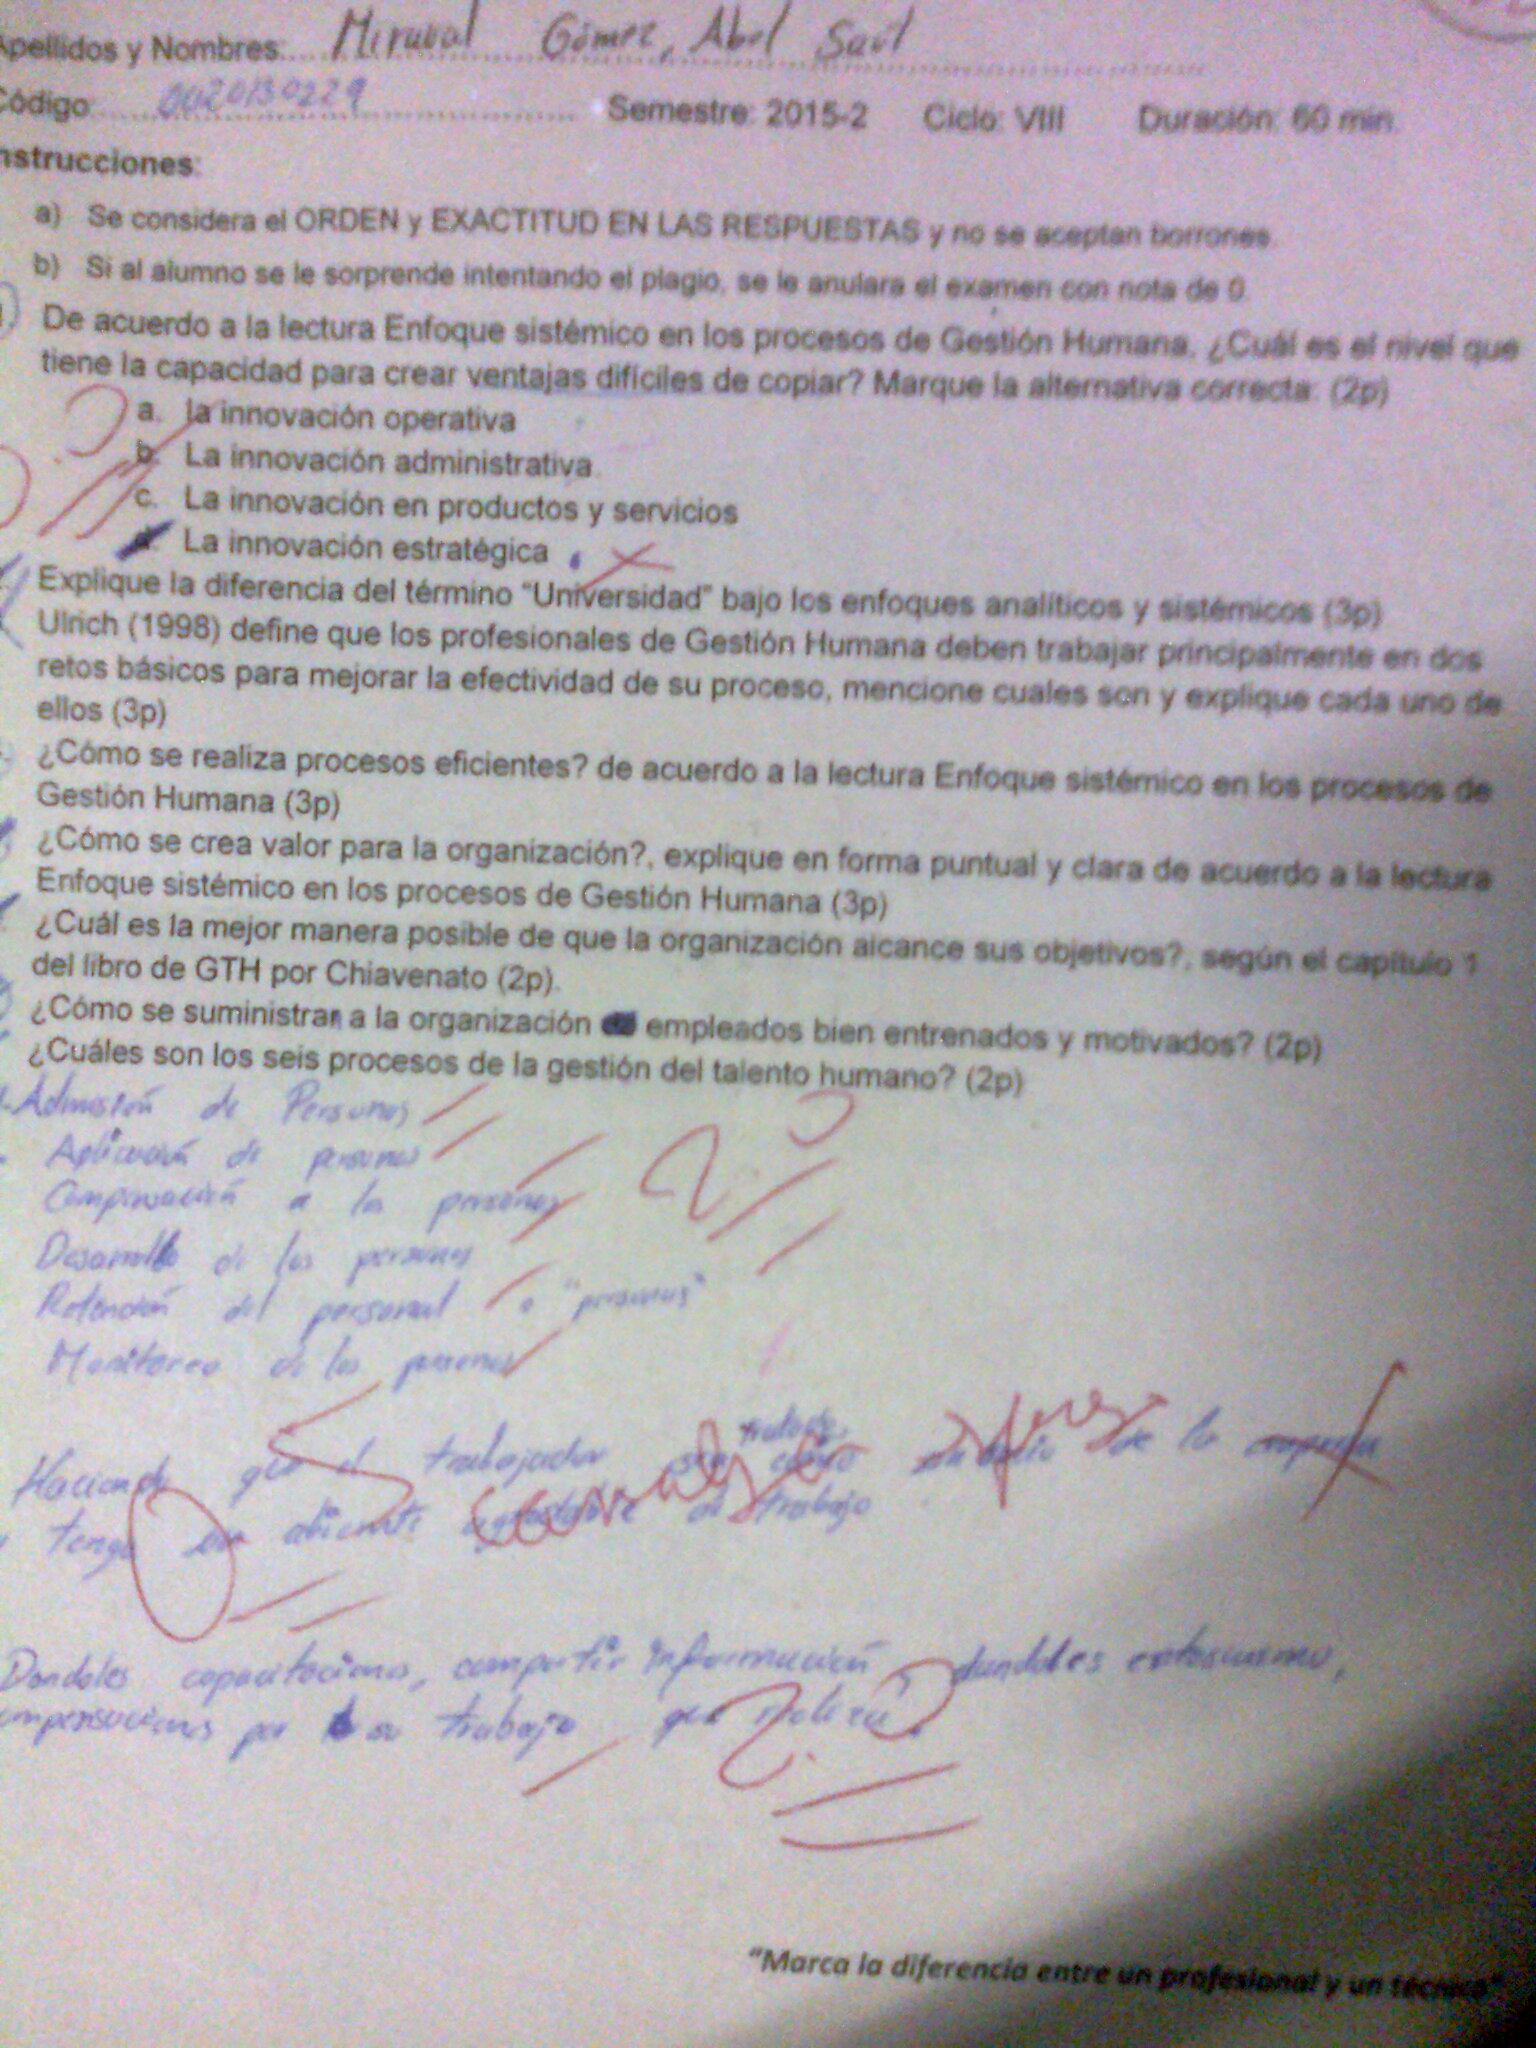 Apellidos y Nombres: Meraval Gómez, Abel Saúl
Código: 0020130229 Semestre: 2015-2 Ciclo: VIII Duración: 60 min.
nstrucciones:
a) Se considera el ORDEN y EXACTITUD EN LAS RESPUESTAS y no se aceptan borrones.
b) Si al alumno se le sorprende intentando el plagio, se le anulara el examen con nota de 0.
De acuerdo a la lectura Enfoque sistémico en los procesos de Gestión Humana, ¿Cuál es el nivel que
tiene la capacidad para crear ventajas difíciles de copiar? Marque la alternativa correcta: (2p)
a. la innovación operativa
b. La innovación administrativa.
c. La innovación en productos y servicios
d. La innovación estratégica
Explique la diferencia del término "Universidad" bajo los enfoques analíticos y sistémicos (3p)
Ulrich (1998) define que los profesionales de Gestión Humana deben trabajar principalmente en dos
retos básicos para mejorar la efectividad de su proceso, mencione cuales son y explique cada uno de
ellos (3p)
¿Cómo se realiza procesos eficientes? de acuerdo a la lectura Enfoque sistémico en los procesos de
Gestión Humana (3p)
¿Cómo se crea valor para la organización?, explique en forma puntual y clara de acuerdo a la lectura
Enfoque sistémico en los procesos de Gestión Humana (3p)
¿Cuál es la mejor manera posible de que la organización alcance sus objetivos?, según el capitulo 1
del libro de GTH por Chiavenato (2p).
¿Cómo se suministran a la organización empleados bien entrenados y motivados? (2p)
¿Cuáles son los seis procesos de la gestión del talento humano? (2p)
Admisión de Personas
Aplicación de personas
Compensación a las personas
Desarrollo de las personas
Retención del personal o "personas"
Monitoreo de las personas
Haciendo que el trabajador sea tratado como de la empresa
tenga un abiente agradable de trabajo
Dandoles capacitaciones, compartir información, dandoles entusiasmo,
compensaciones por su trabajo que realiza.
"Marca la diferencia entre un profesional y un técnico"